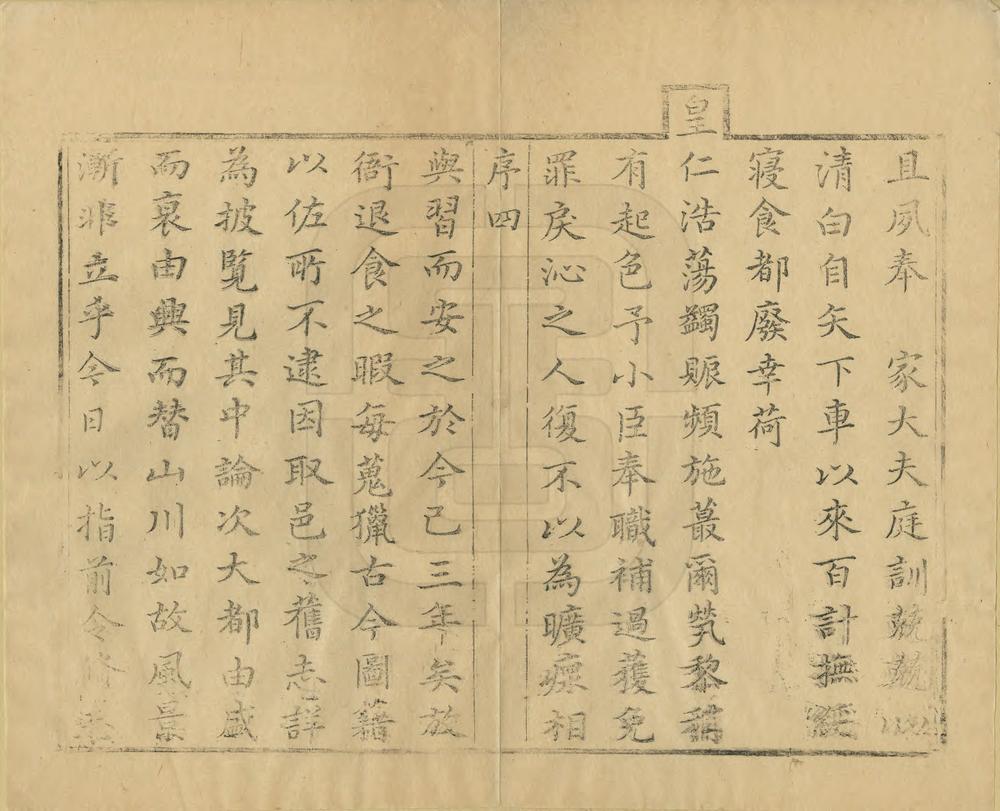 且夙奉　家大夫庭訓兢兢以
清白自矢下車以來百計撫綏
寝食都廢幸荷
皇
仁浩蕩蠲賑頻施蕞爾煢黎稍
有起色予小臣奉職補過獲免
罪戾沁之人復不以為曠瘝相
序四
與習而安之於今已三年矣放
衙退食之暇每蒐獵古今圖籍
以佐所不逮因取邑之舊志詳
為披覧見其中論次大都由盛
而衰由興而替山川如故風景
漸非立乎今日以指前令